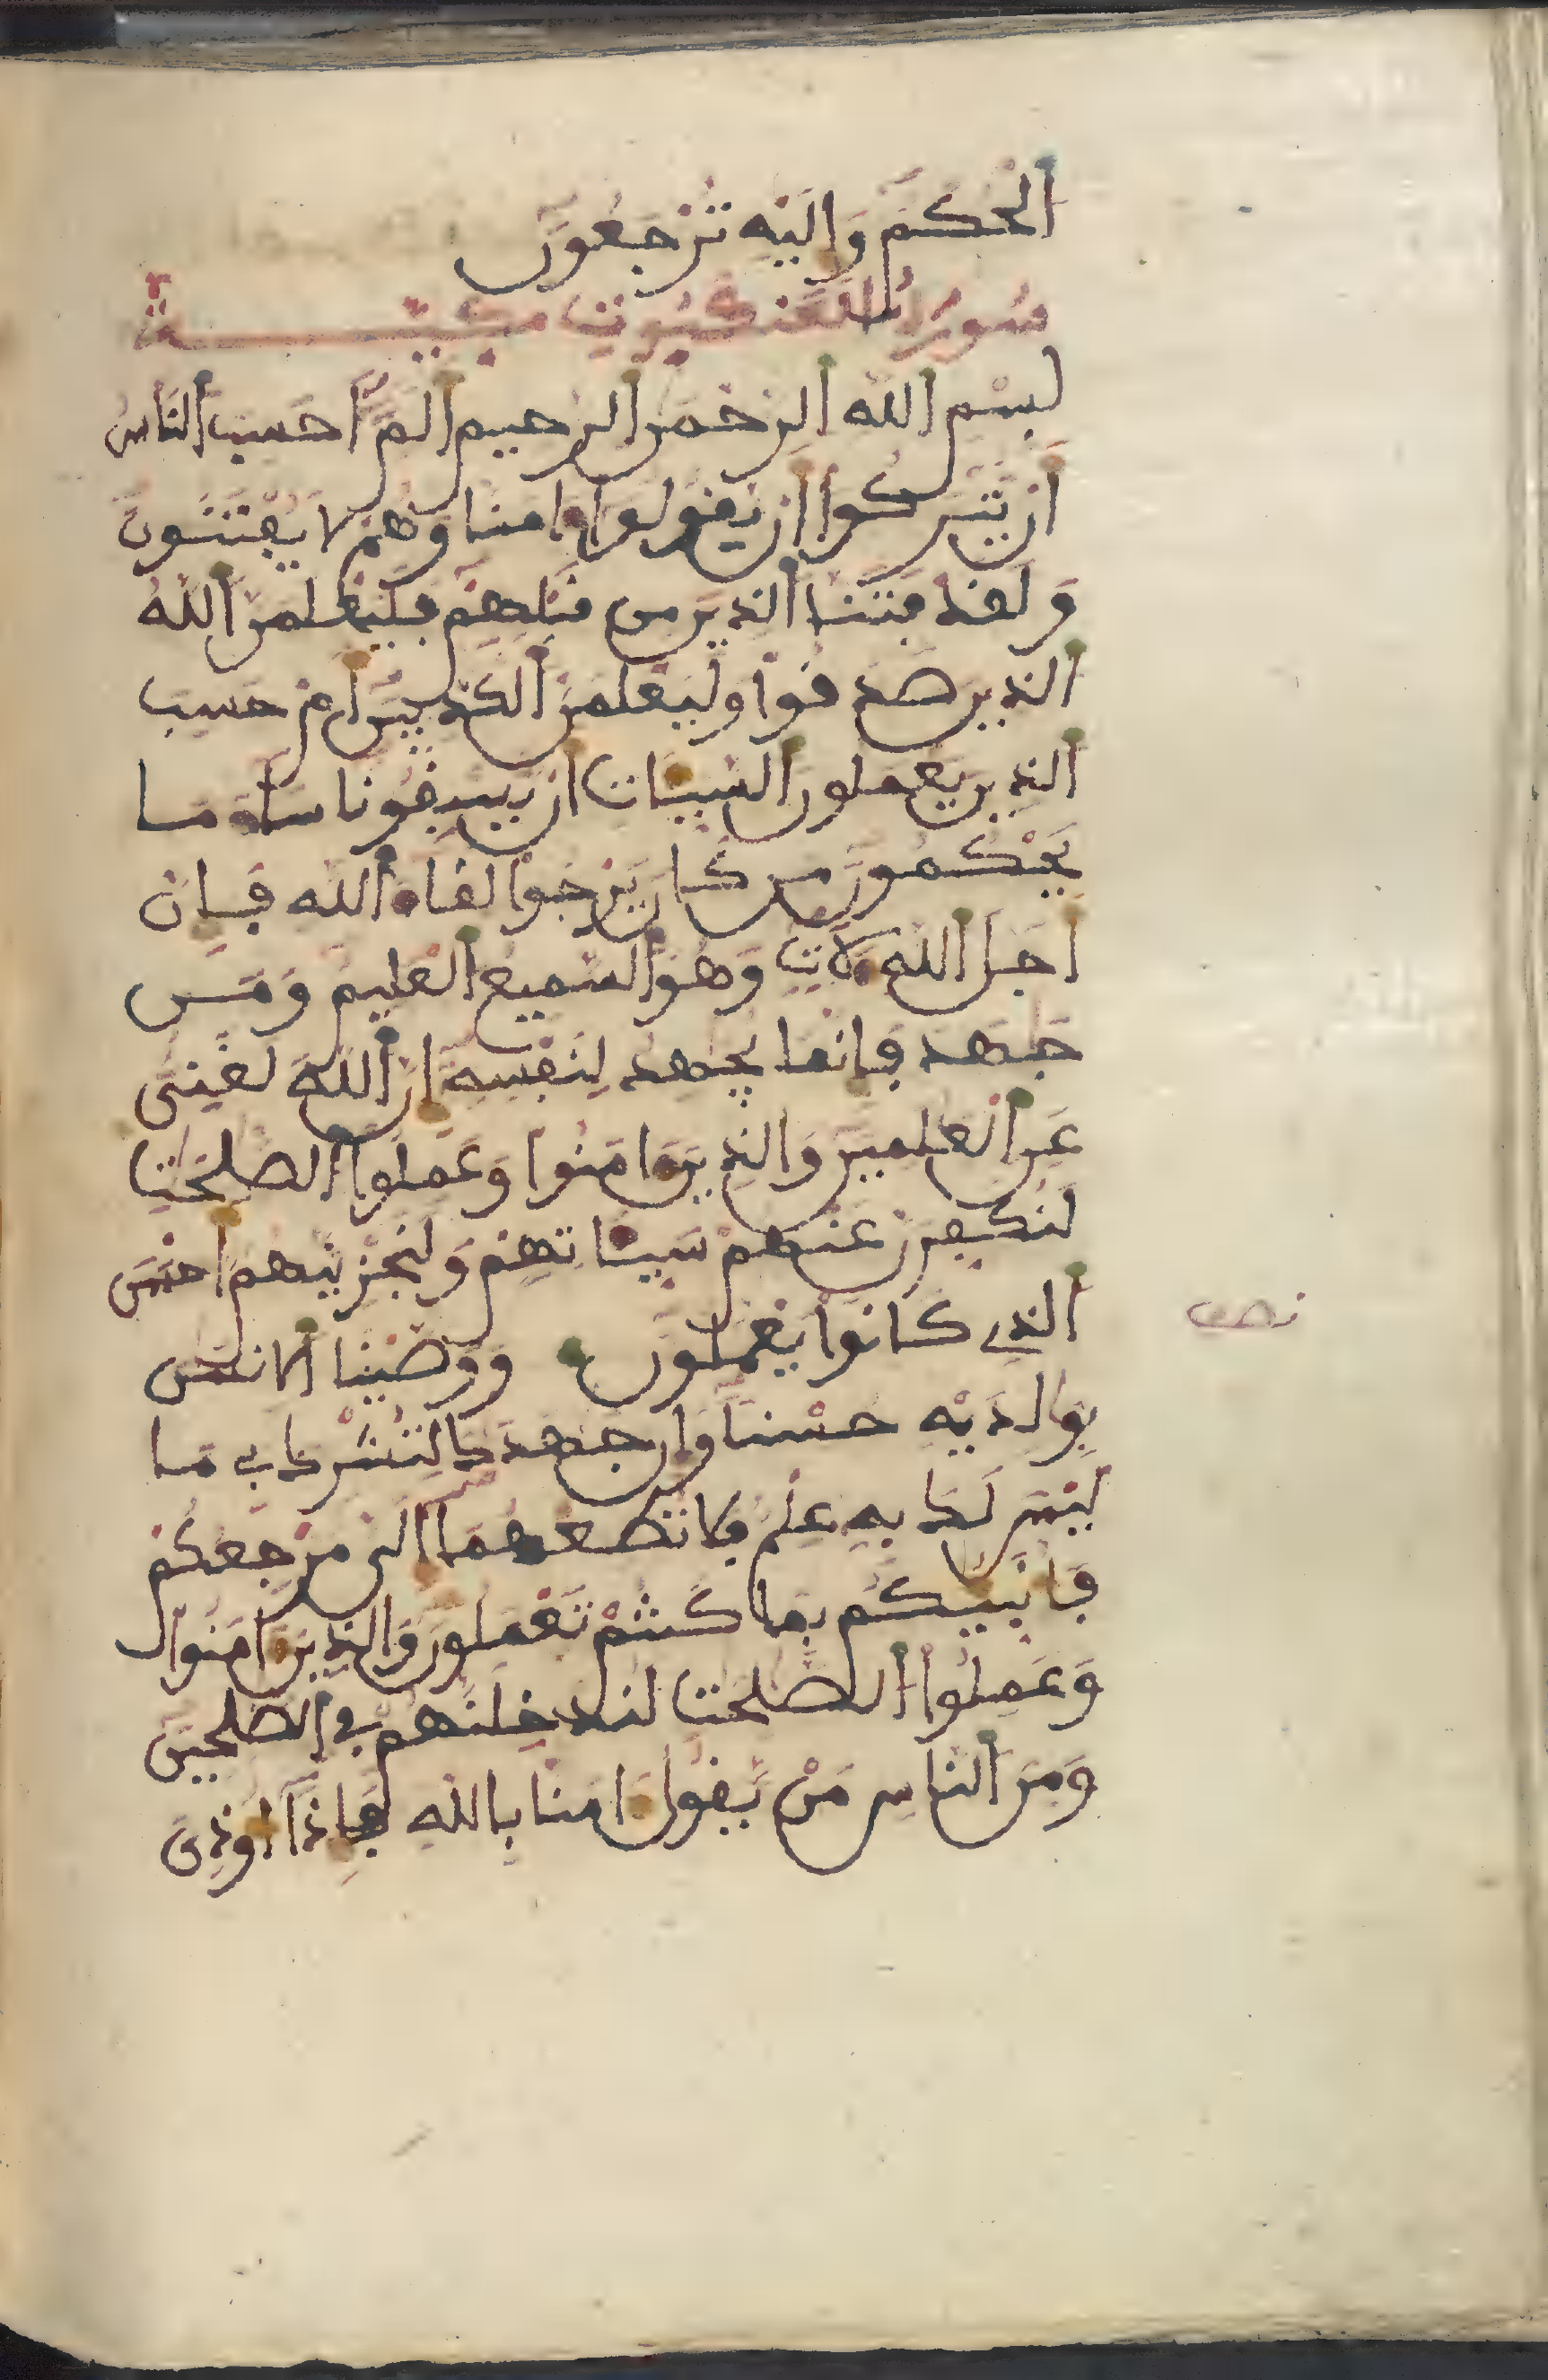 الحكم واليه ترجعون
سورة العنكبوت مكية
بسم الله الرحمن الرحيم الم احسب الناس
ان يتركوا ان يقولوا ءامنا وهم لا يفتنون
ولقد فتنا الذين من قبلهم فليعلمن الله
الذين صدقوا وليعلمن الكذبين ام حسب
الذين يعملون السيات ان يسبقونا ساء ما
يحكمون من كان يرجوا لقاء الله فان
اجل الله لات وهو السميع العليم ومن
جهد فانما يجهد لنفسه ان الله لغنى
عن العلمين والذين ءامنوا وعملوا الصلحت
لنكفرن عنهم سياتهم ولنجزينهم احسن
الذي كانوا يعملون ووصينا الانسن
نصف
بوالديه حسنا وان جهداك لتشرك بي ما
ليس لك به علم فلا تطعهما الى مرجعكم
فانبيكم بما كنتم تعملون والذين ءامنوا
وعملوا الصلحت لندخلنهم في الصلحين
ومن الناس من يقول ءامنا بالله فاذا اوذى